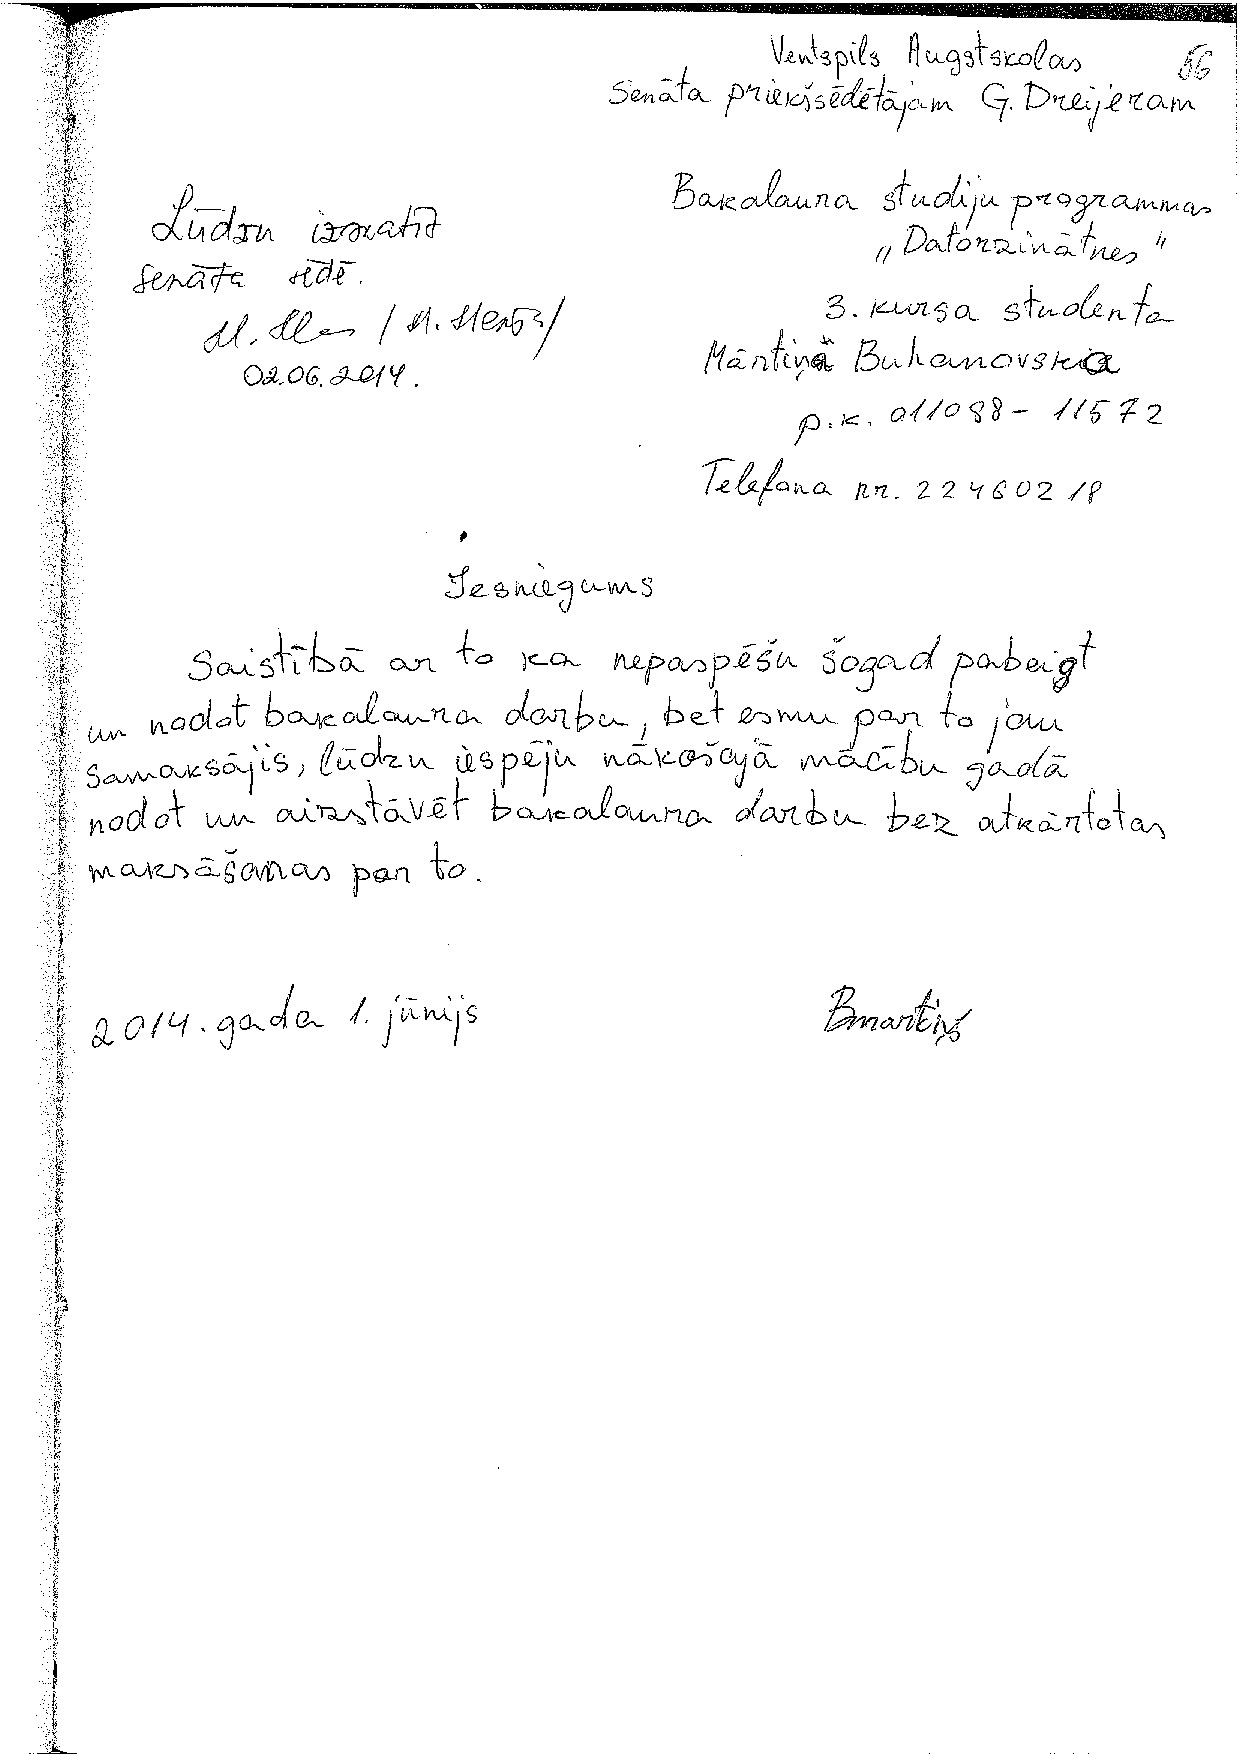 Ventspils Augstskolas
56
Senāta priekšsēdētājam G. Dreijeram
Bakalaura studiju programmas
„Datorzinātnes"
3. kursa studenta
Mārtiņa Buhanovska
p.k. 011088-11572
Telefona nr. 22460218
Lūdzu izskatīt
Senāta sēdē.
02.06.2014.
Iesniegums
Saistībā ar to ka nepaspēšu šogad pabeigt
un nodot bakalaura darbu, bet esmu par to jau
samaksājis, lūdzu iespēju nākošajā mācību gadā
nodot un aizstāvēt bakalaura darbu bez atkārtotas
maksāšanas par to.
2014. gada 1. jūnijs